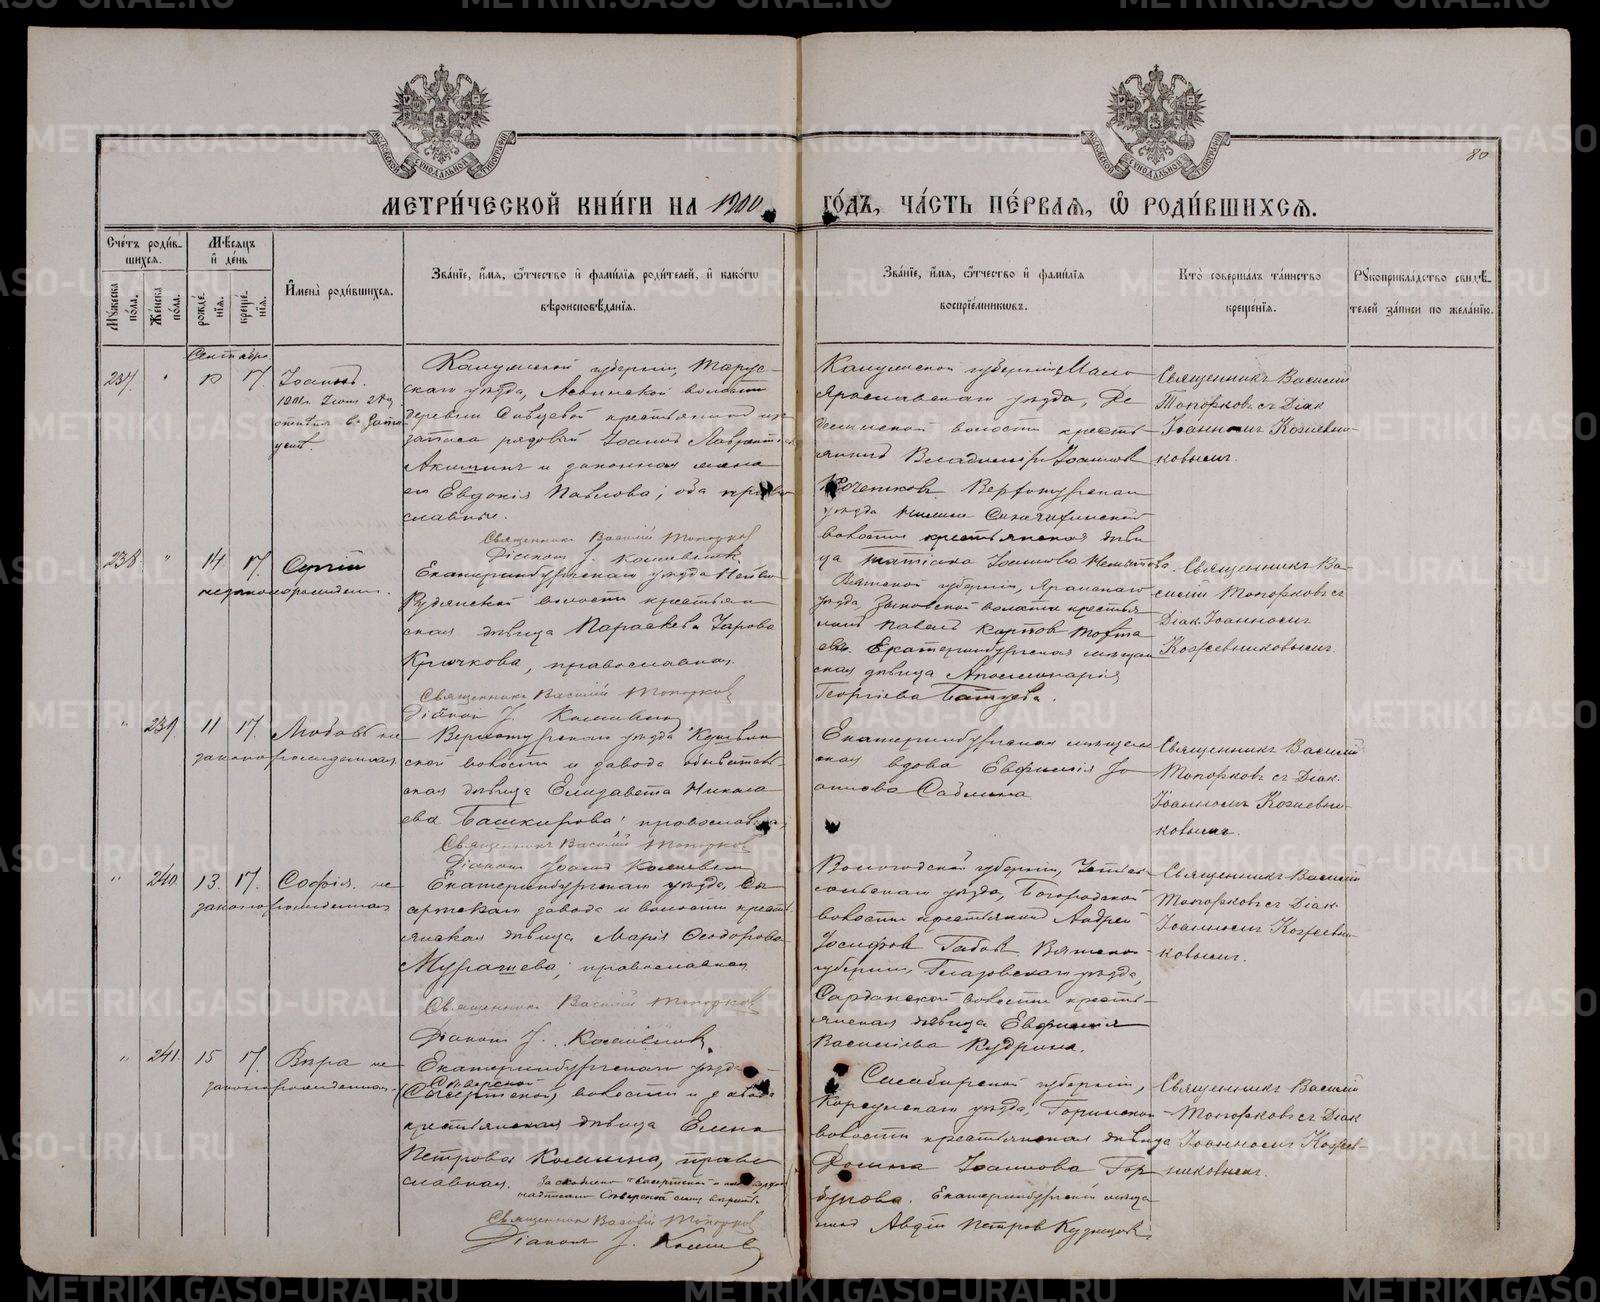 80
МЕТРИ́ЧЕСКОЙ КНИ́ГИ НА 1900 ГО́ДЪ, ЧА́СТЬ ПЕ́РВАЯ, Ѿ РОДИ́ВШИХСЯ.
Сче́тъ роди́в-
шихся.
Му́жеска по́ла.
Же́нска по́ла.
Мѣ́сяцъ
и҆ де́нь
рожде́-
нія.
креще́-
нія.
И҆мена̀ роди́вшихся.
Зва́ніе, и҆́мя, ѻ҆́тчество и҆ фами́лія роди́телей, и҆ како́гѡ
вѣроисповѣ́данія.
Зва́ніе, и҆́мя, ѻ҆́тчество и҆ фами́лія
воспріе́мниковъ.
Кто̀ соверша́лъ та́инство
креще́нія.
Рукоприкла́дство свидѣ́-
телей за́писи по жела́нію.
Сентябрь
237. " 10 17
Іоаннъ.
Калужской губерніи, Тарус-
скаго уѣзда,
деревни крестьянинъ из
запаса рядовой Іоаннъ Лаврентіев
Акишинъ и законная жена
его Евдокія Павлова; оба право
славные.
Священникъ Василій Топорковъ
Діаконъ І. Кожевник
Калужской губерніи Мало
Ярославскаго уѣзда,
волости кресть
янинъ Владиміръ Іоаннов
Кочетковъ. Верхотурскаго
уѣзда Синячихинской
волости крестьянская дѣви
ца Татіана Іоаннова
Священникъ Василій
Топорковъ съ Діак
Іоанномъ Кожевни-
ковымъ.
238. " 14 17.
Сергій
незаконорожден.
Екатеринбургскаго уѣзда Нейво
Рудянской волости крестьян
ская дѣвица Параскева
Крючкова, православная.
Священникъ Василій Топорков
Діакон І. Кожевник
Вятской губерніи, Яранскаго
уѣзда, волости крестья
нинъ Павелъ Карпов
евъ. Екатеринбургская мѣщан
ская дѣвица Аполлинарія
Георгіева
Священникъ Ва-
силій Топорковъ съ
Діак. Іоанномъ
Кожевниковымъ.
" 239. 11 17.
Любовь не
законорожденная
Верхотурскаго уѣзда Кушвин
ской волости и завода обыватель
ская дѣвица Елизавета Никола
ева Башкирова; православная
Священникъ Василій Топорков
Діаконъ Іоаннъ Кожевник
Екатеринбургская мѣщан
ская вдова Евфимія Іо
аннова
Священникъ Василій
Топорковъ съ Діак.
Іоанномъ Кожевни-
ковымъ.
" 240 13. 17.
Софія. не
законорожденная
Екатеринбургскаго уѣзда, Сы
сертскаго завода и волости кресть
янская дѣвица Марія Ѳеодорова
Мурашева; православная
Священникъ Василій Топорков
Діаконъ І. Кожевник
Вологодской губерніи, Усть
сысольскаго уѣзда, Богородской
волости крестьянинъ Андрей
Іосифов Габов. Вятской
губерніи, Глазовскаго уѣзда,
волости кресть-
янская дѣвица Евфимія
Василіева Кудрина.
Священникъ Василій
Топорковъ съ Діак
Іоанномъ Кожевни-
ковымъ.
" 241. 15 17.
Вѣра не
законорожденная.
Екатеринбургскаго уѣзда
Сиверской
(Сысертской) волости и завода
крестьянская дѣвица Елена
Петрова Комина, право
славная. За скобкою "Сысертской" и над
надписано Сиверской сему вѣрить.
Священник Василій Топорков
Діаконъ І. Кожев
Симбирской губерніи,
Корсунскаго уѣзда,
волости крестьянская дѣвица
Домна Іоаннова Гор
бунова. Екатеринбургскій мѣща
нинъ Авдій Петров Кузнецов.
Священникъ Василій
Топорковъ съ Діак
Іоанномъ Кожев-
никовымъ.